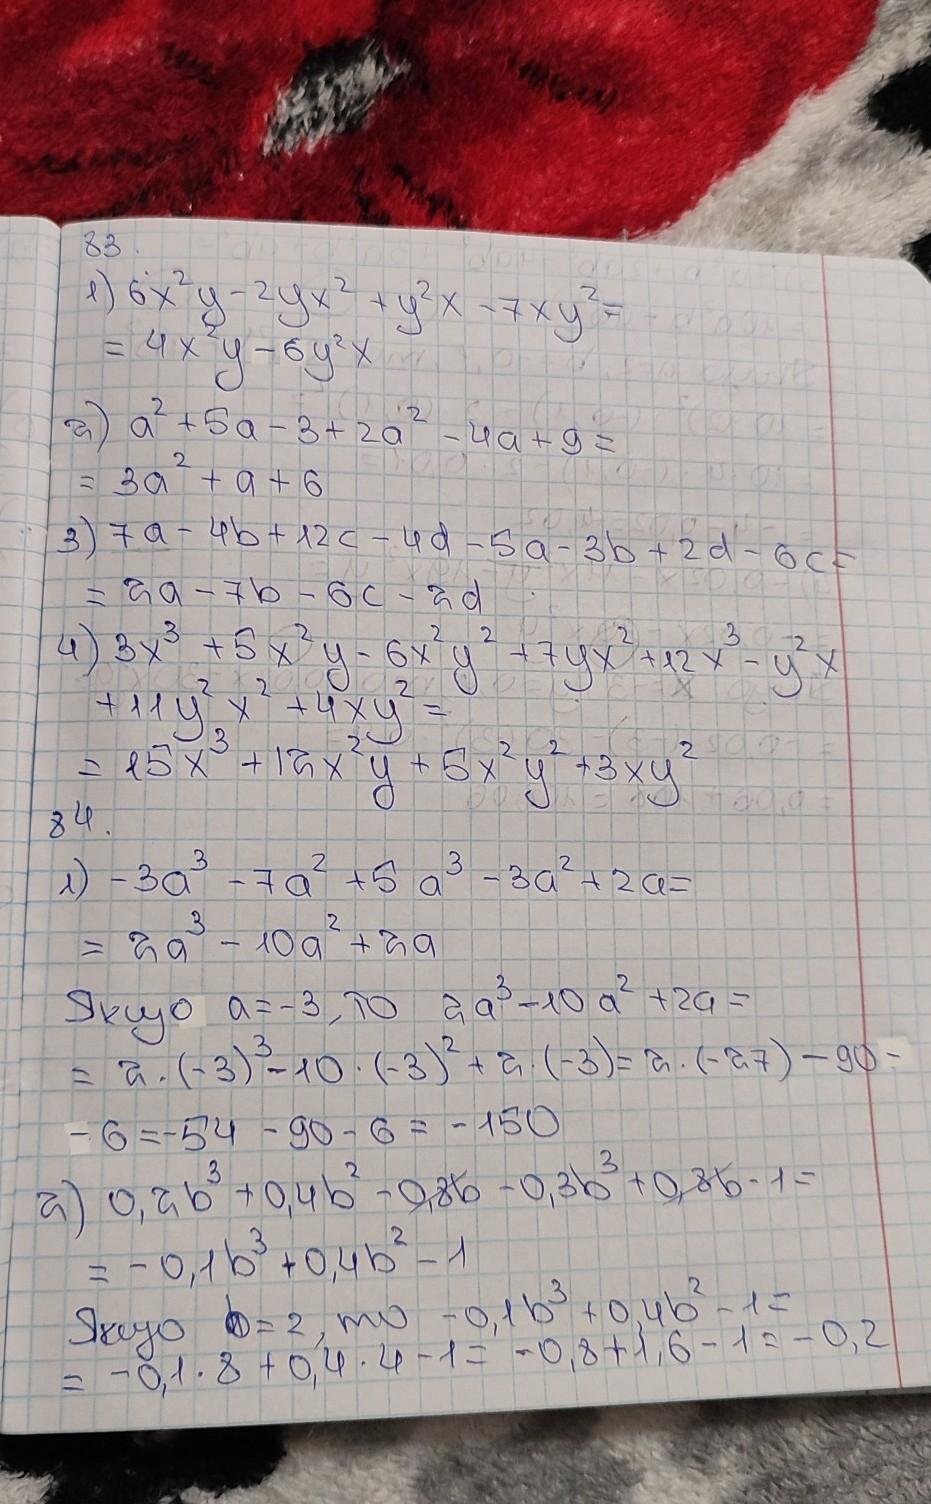 83.
1) 6x²y - 2yx² + y²x - 7xy² =
= 4x²y - 6y²x
2) a² + 5a - 3 + 2a² - 4a + 9 =
= 3a² + a + 6
3) 7a - 4b + 12c - 4d - 5a - 3b + 2d - 6c =
= 2a - 7b - 6c - 2d
4) 3x³ + 5x²y - 6x²y² + 7yx² + 12x³ - y²x
+ 11y²x² + 4xy² =
= 15x³ + 12x²y + 5x²y² + 3xy²
84.
1) -3a³ - 7a² + 5a³ - 3a² + 2a =
= 2a³ - 10a² + 2a
Якщо a = -3, то 2a³ - 10a² + 2a =
= 2·(-3)³ - 10·(-3)² + 2·(-3) = 2·(-27) - 90 -
- 6 = -54 - 90 - 6 = -150
2) 0,2b³ + 0,4b² - 0,8b - 0,3b³ + 0,8b - 1 =
= -0,1b³ + 0,4b² - 1
Якщо b = 2, то -0,1b³ + 0,4b² - 1 =
= -0,1·8 + 0,4·4 - 1 = -0,8 + 1,6 - 1 = -0,2